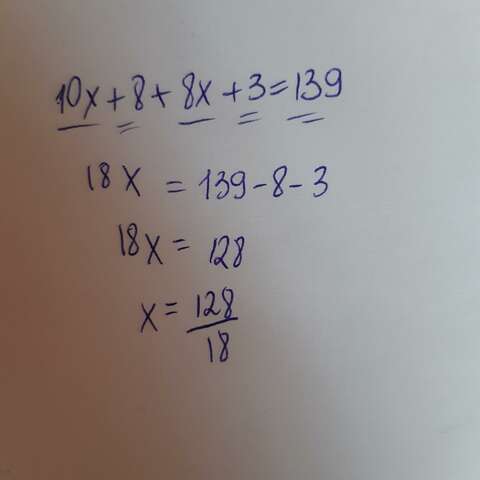 10x + 8 + 8x + 3 = 139
18x = 139 - 8 - 3
18x = 128
x = 128/18